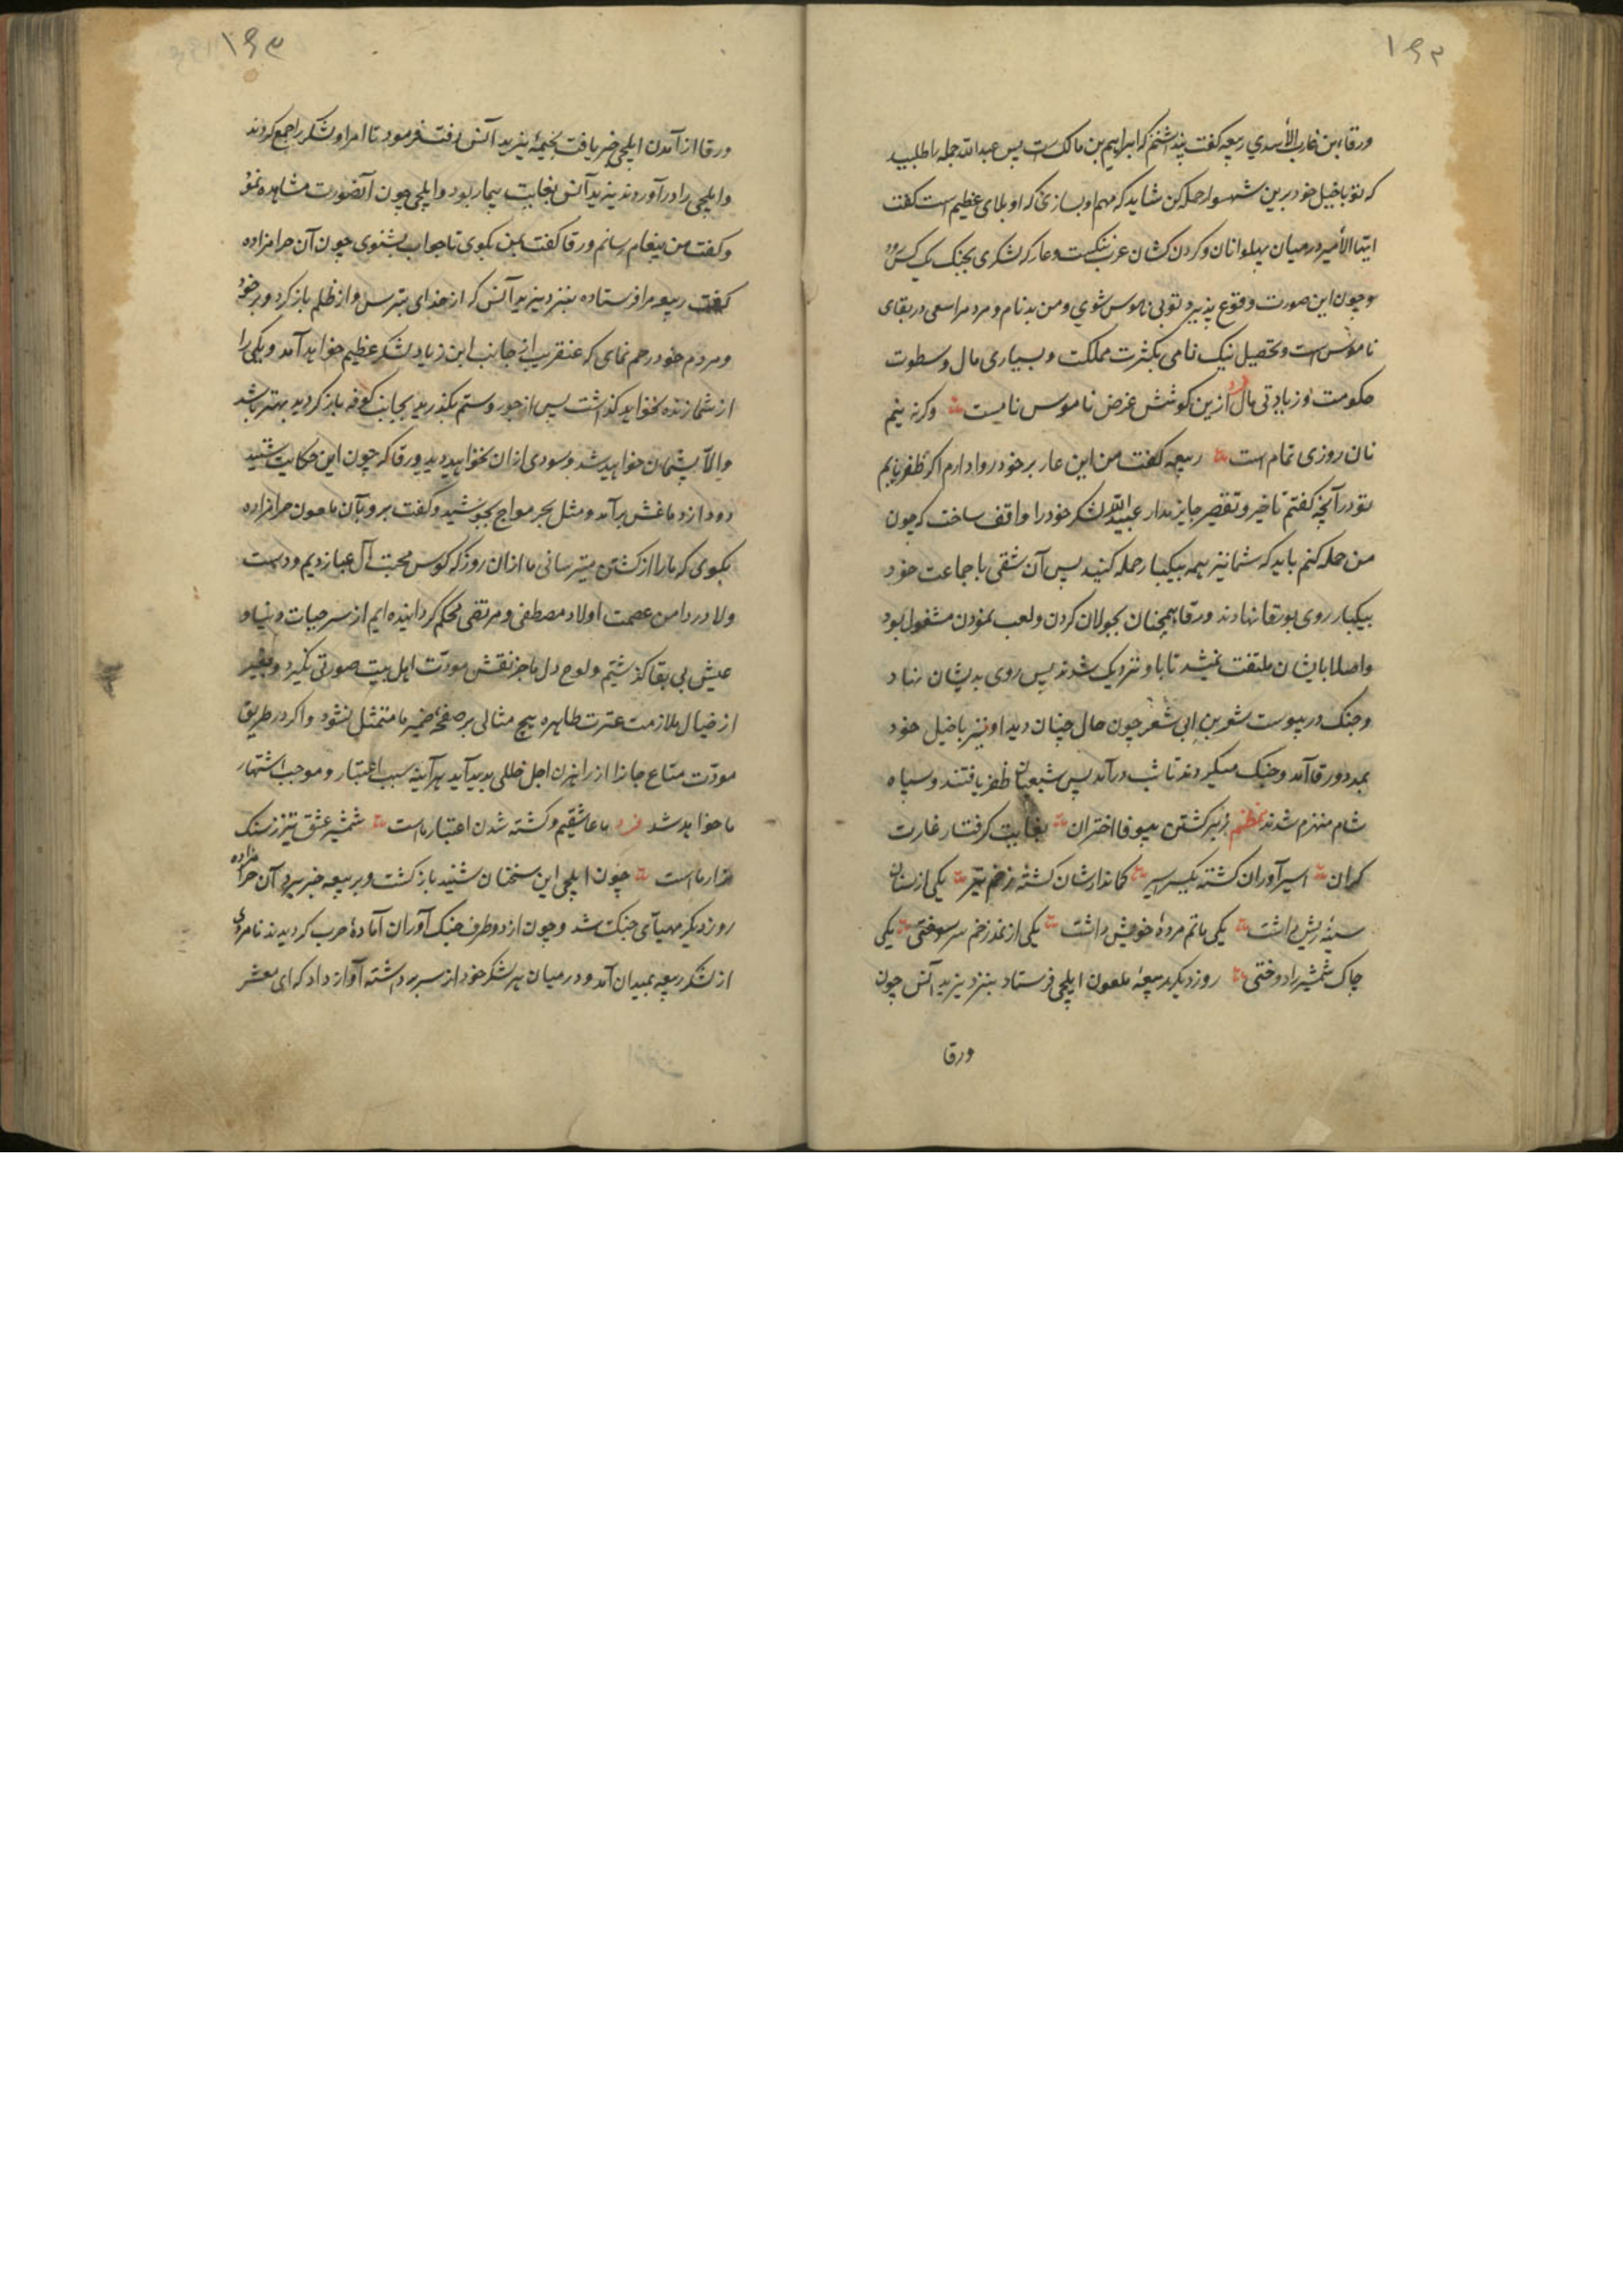 ۱۶۲
ورقاء بن عازب الأسدي ربیعه کفت پنداشتم که ابراهیم بن مالک است پس عبدالله جمله را طلبید
که تو با خیل خود برین شهسوار حمله کن شاید که مهم او بسازی که او بلای عظیم است کفت
ایها الأمیر در میان پهلوانان و کردن کشان عرب ننکست و عار که لشکری بجنک یک کس رود
و چون این صورت وقوع پذیرد تو بی ناموس شوی و من بدنام و مرد مرا سعی در بقای
ناموس است و تحصیل نیک نامی بکثرت مملکت و بسیاری مال و سطوت
حکومت و زیادتی مال فرد ازین کوشش غرض ناموس نامیست وکرنه نیم
نان روزی تمام است ربیعه کفت من این عار بر خود روا دارم اکر ظفر یابم
تو در آنچه کفتم تاخیر و تقصیر جایز مدار عبدالله لشکر خود را واقف ساخت که چون
من حمله کنم باید که شما نیز همه بیکبار حمله کنید پس آن شقی با جماعت خود
بیکبار روی بورقا نهادند ورقا همچنان بجولان کردن و لعب نمودن مشغول بود
و اصلا بایشان ملتفت نمیشد تا باو نزدیک شدند پس روی بدیشان نهاد
و جنک در پیوست شعر بن ابی شعر چون حال چنان دید او نیز با خیل خود
بمدد ورقا آمد و جنک میکردند تا شب درآمد پس شیعیان ظفر یافتند و سپاه
شام منهزم شدند نظم زبیر کشتن بیوفا اختران بغایت کرفتار غارت
کران اسیر آوران کشته یکسر سیر کماندارشان کشته زخم تیر یکی از سنان
سینه ریش داشت یکی ماتم مردهٔ خویش داشت یکی از نمد زخم سر سوختی یکی
چاک شمشیر را دوختی روز دیکر ربیعهٔ ملعون ایلچی فرستاد بنزد یزید انس چون
ورقا
۱۶۳
ورقا از آمدن ایلچی خبر یافت بخیمهٔ یزید انس رفت فرمود تا امرا و لشکر را جمع کردند
و ایلچی را درآوردند یزید انس بغایت بیمار بود و ایلچی چون آنصورت مشاهده نمود
و کفت من پیغام رسانم ورقا کفت بمن بکوی تا جواب بشنوی چون آن حرامزاده
کفت ربیعه مرا فرستاده بنزد یزید انس که از خدای بترس و از ظلم باز کرد و بر خود
و مردم خود رحم نمای که عنقریب از جانب ابن زیاد لشکر عظیم خواهد آمد و یکی را
از شما زنده نخواهد کذاشت پس از جور و ستم بکذرید بجانب کوفه باز کردید بهتر باشد
و الا پشیمان خواهید شد و سودی ازان نخواهید دید ورقا که چون این حکایت شنید
دود از دماغش برآمد و مثل بحر مواج بجوشید و کفت برو بآن ملعون حرامزاده
بکوی که ما را از کشتن میترسانی ما ازان روز که کوس محبت آل عبا زدیم و دست
ولا در دامن عصمت اولاد مصطفی و مرتضی محکم کردانیده ایم از سر حیات دنیا و
عیش بی بقا کذشتیم و لوح دل ما جز نقش مودت اهل بیت صورتی نکیرد و بغیر
از خیال ملازمت عترت طاهره هیچ مثالی بر صفحهٔ ضمیر ما متمثل نشود و اکر در طریق
مودت متاع جانرا از راهزن اجل خللی پدید آید هرآینه سبب اعتبار و موجب اشتهار
ما خواهد شد فرد ما عاشقیم و کشته شدن اعتبار ماست شمشیر عشق تیز ز سنک
مزار ماست چون ایلچی این سخنان شنید باز کشت و بربیعه خبر برد آن حرامزاده
روز دیکر مهیای جنک شد و چون از دو طرف جنک آوران آمادهٔ حرب کردیدند نامردی
از لشکر ربیعه بمیدان آمد و در میان هر لشکر خود از سر برداشته آواز داد که ای معشر